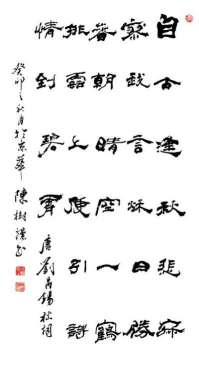 自古逢秋悲寂
寥我言秋日勝
春朝晴空一鶴
排雲上便引詩
情到碧霄
唐劉禹錫秋詞
癸卯之秋月於京華 陳樹書